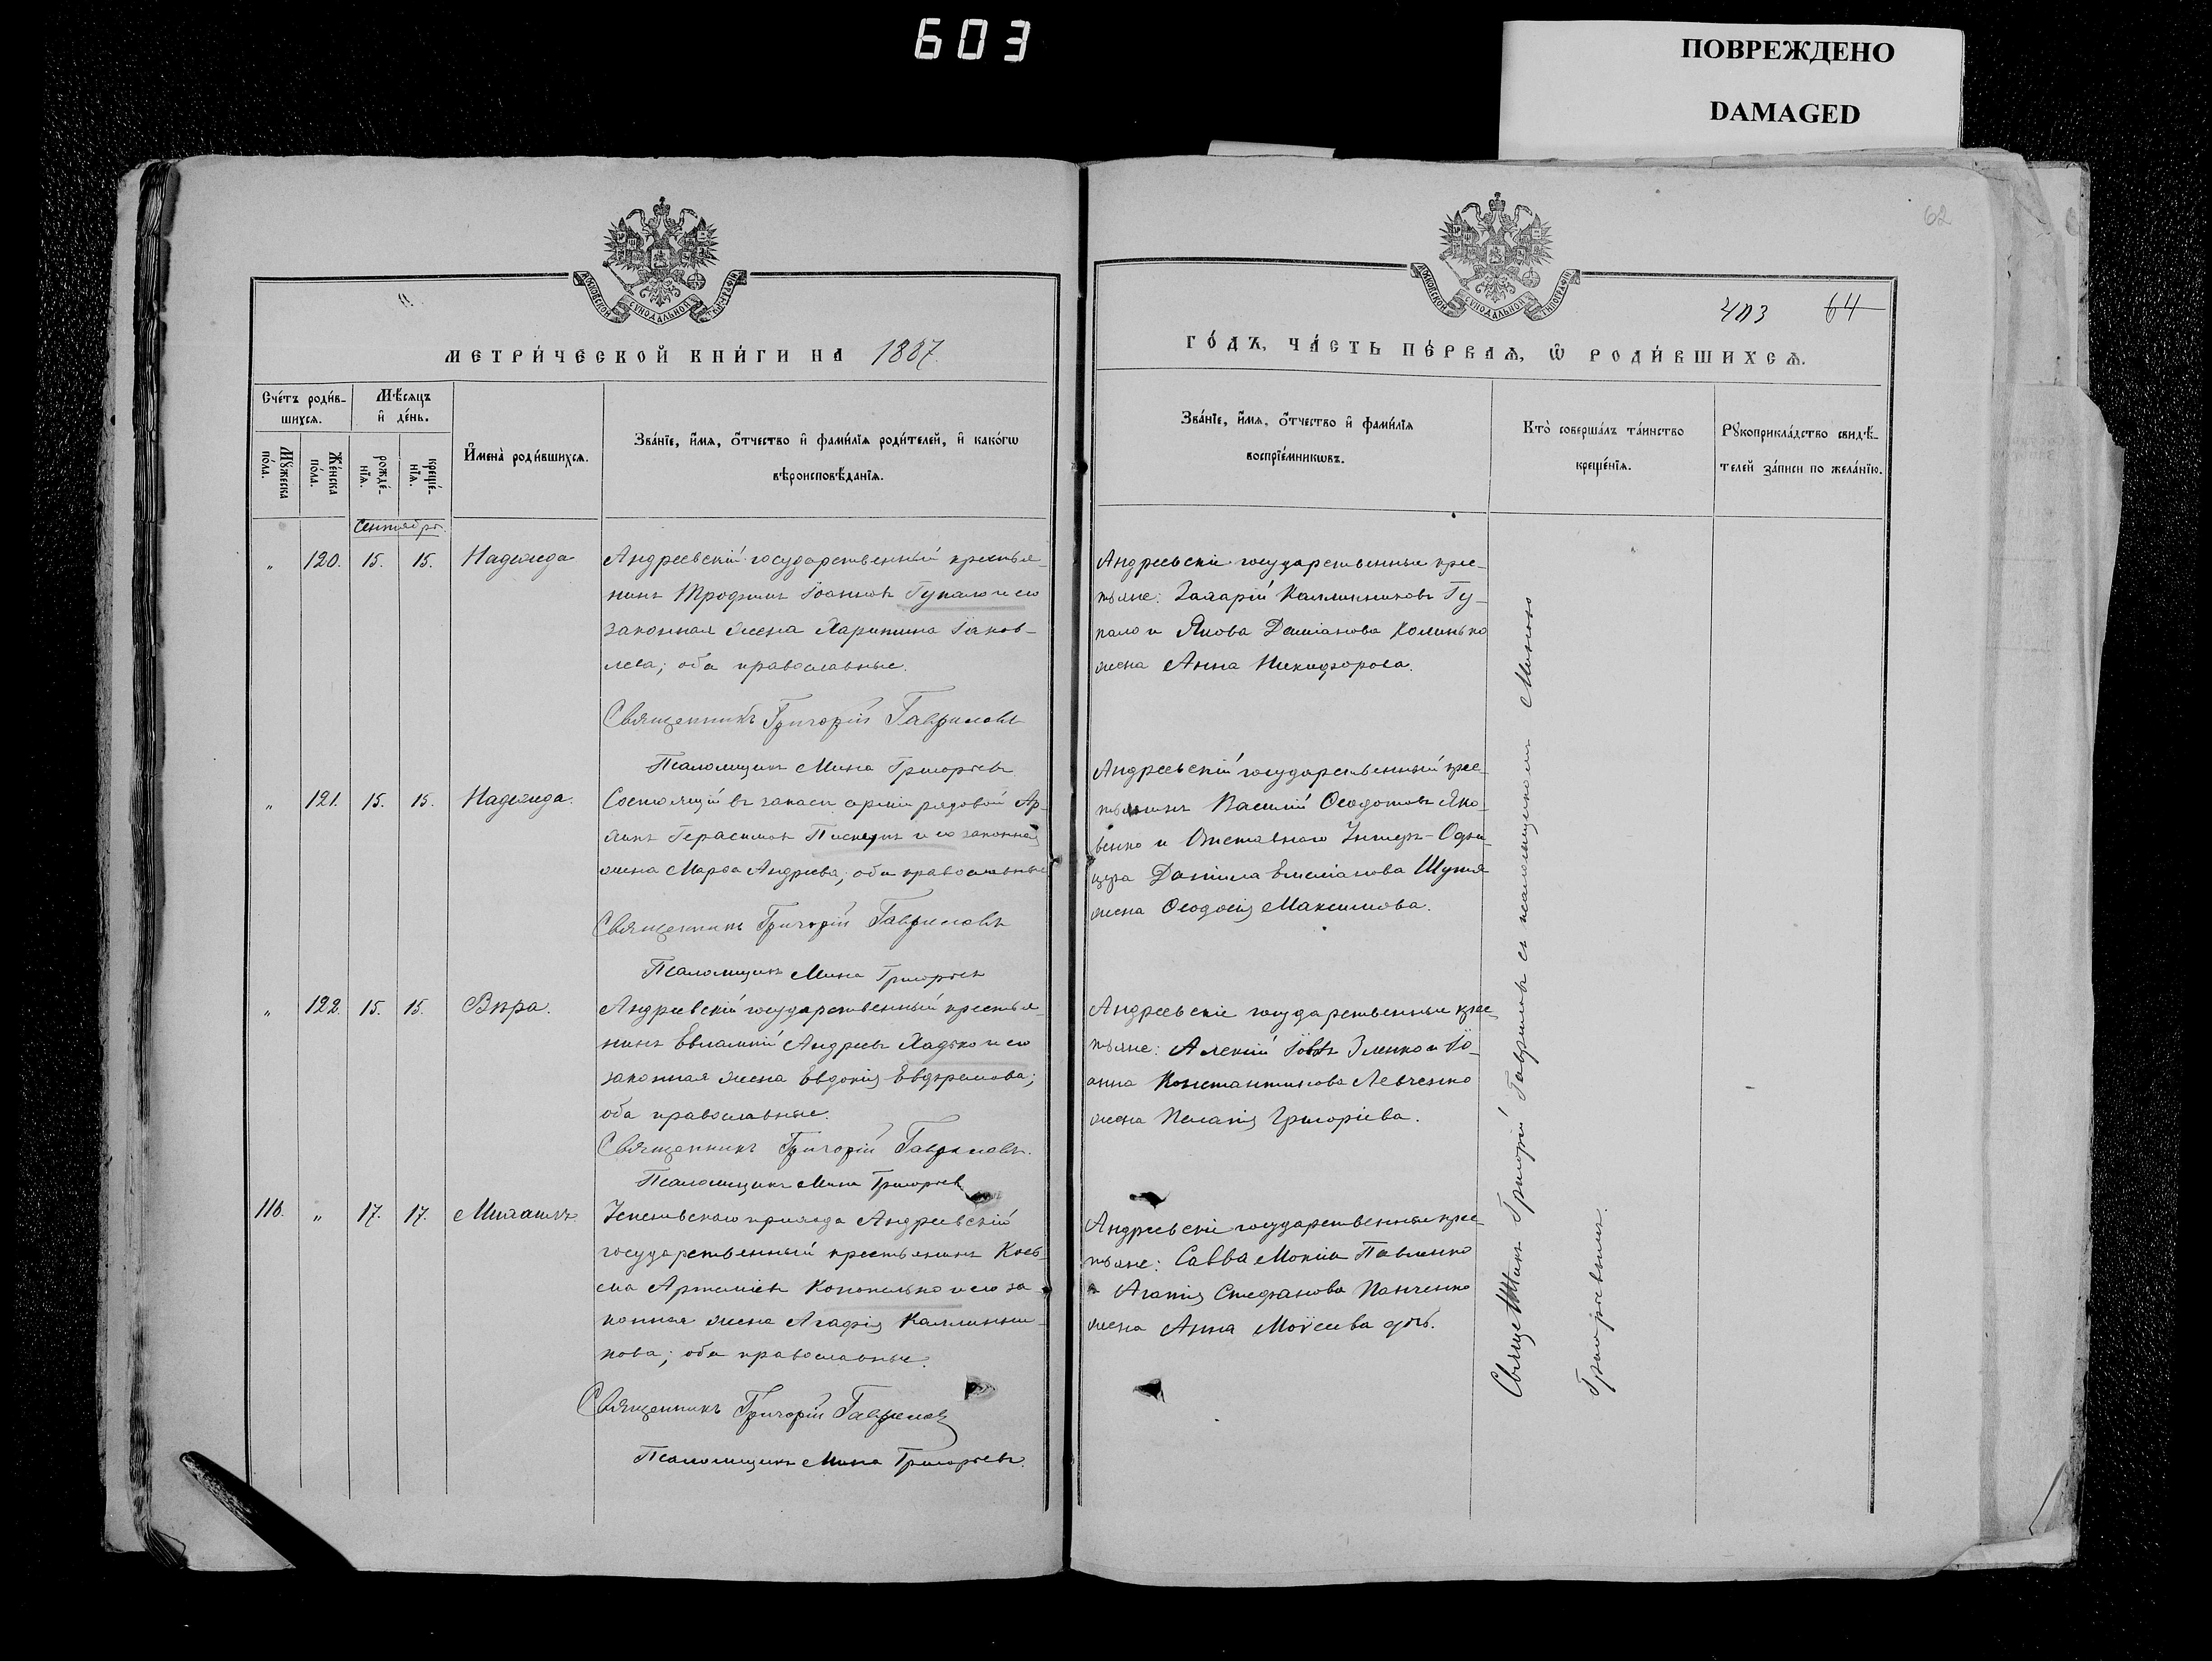 603
ПОВРЕЖДЕНО
DAMAGED
62
МОСКОВСКОЙ СѴНОДАЛЬНОЙ ТИПОГРАФІИ
МОСКОВСКОЙ СѴНОДАЛЬНОЙ ТИПОГРАФІИ
403 64
МЕТРИ́ЧЕСКОЙ КНИ́ГИ НА 1887.
ГО́ДЪ, ЧА́СТЬ ПЕ́РВАѦ, Ѡ҆ РОДИ́ВШИХСѦ.
Сче́тъ роди́в-
шихсѧ.
Мѣ́сѧцъ
и҆ де́нь.
Мꙋ́жеска
по́ла.
Же́нска
по́ла.
рожде́-
нїѧ.
креще́-
нїѧ.
И҆мена̀ роди́вшихсѧ.
Зва́нїе, и҆́мѧ, ѻ҆́тчество и҆ фами́лїѧ роди́телей, и҆ како́гѡ
вѣроисповѣ́данїѧ.
Зва́нїе, и҆́мѧ, ѻ҆́тчество и҆ фами́лїѧ
воспрїе́мникѡвъ.
Кто̀ соверша́лъ та́инство
креще́нїѧ.
Рꙋкоприкла́дство свидѣ́-
телей за́писи по жела́нїю.
Сентябрь.
„ 120. 15. 15. Надежда
Андреевскій государственный крестья-
нинъ Трофимъ Іоанновъ Гупало и его
законная жена Харитина Іаков-
лева; оба православные.
Священникъ Григорій Гавриловъ
Псаломщикъ Мина Григорьевъ
Андреевскіе государственные крес-
тьяне: Захарій Каллинниковъ Гу-
пало и Якова Даміанова Колинько
жена Анна Никифорова.
„ 121. 15. 15. Надежда.
Состоящій въ запасѣ арміи рядовой
Герасимовъ и его законная
жена Марѳа Андреева; оба православные
Священникъ Григорій Гавриловъ
Псаломщикъ Мина Григорьевъ
Андреевскій государственный крес-
тьянинъ Василій Ѳеодотовъ Яко-
венко и Отставнаго Унтеръ-Офи-
цера Даніила Емеліанова Шутя
жена Ѳеодосія Максимова.
„ 122. 15. 15. Вѣра.
Андреевскій государственный крестья-
нинъ Евлампій Андреевъ Хадько и его
законная жена Евдокія Евфремова;
оба православные.
Священникъ Григорій Гавриловъ.
Псаломщикъ Мина Григорьевъ
Андреевскіе государственные крес-
тьяне: Алексій Іовъ Зленко и Іо-
анна Константинова Левченко
жена Пелагія Григоріева.
118. „ 17. 17. Михаилъ
Успенскаго прихода Андреевскій
государственный крестьянинъ Кось-
ма Артеміевъ Конопелько и его за-
конная жена Агафія Каллинни-
кова; оба православные.
Священникъ Григорій Гавриловъ
Псаломщикъ Мина Григорьевъ.
Андреевскіе государственные крес-
тьяне: Савва Мокіевъ Павленко
и Агапія Стефанова Панченко
жена Анна Моѵсеева дочь.
Священникъ Григорій Гавриловъ съ псаломщикомъ Миною
Григорьевымъ.